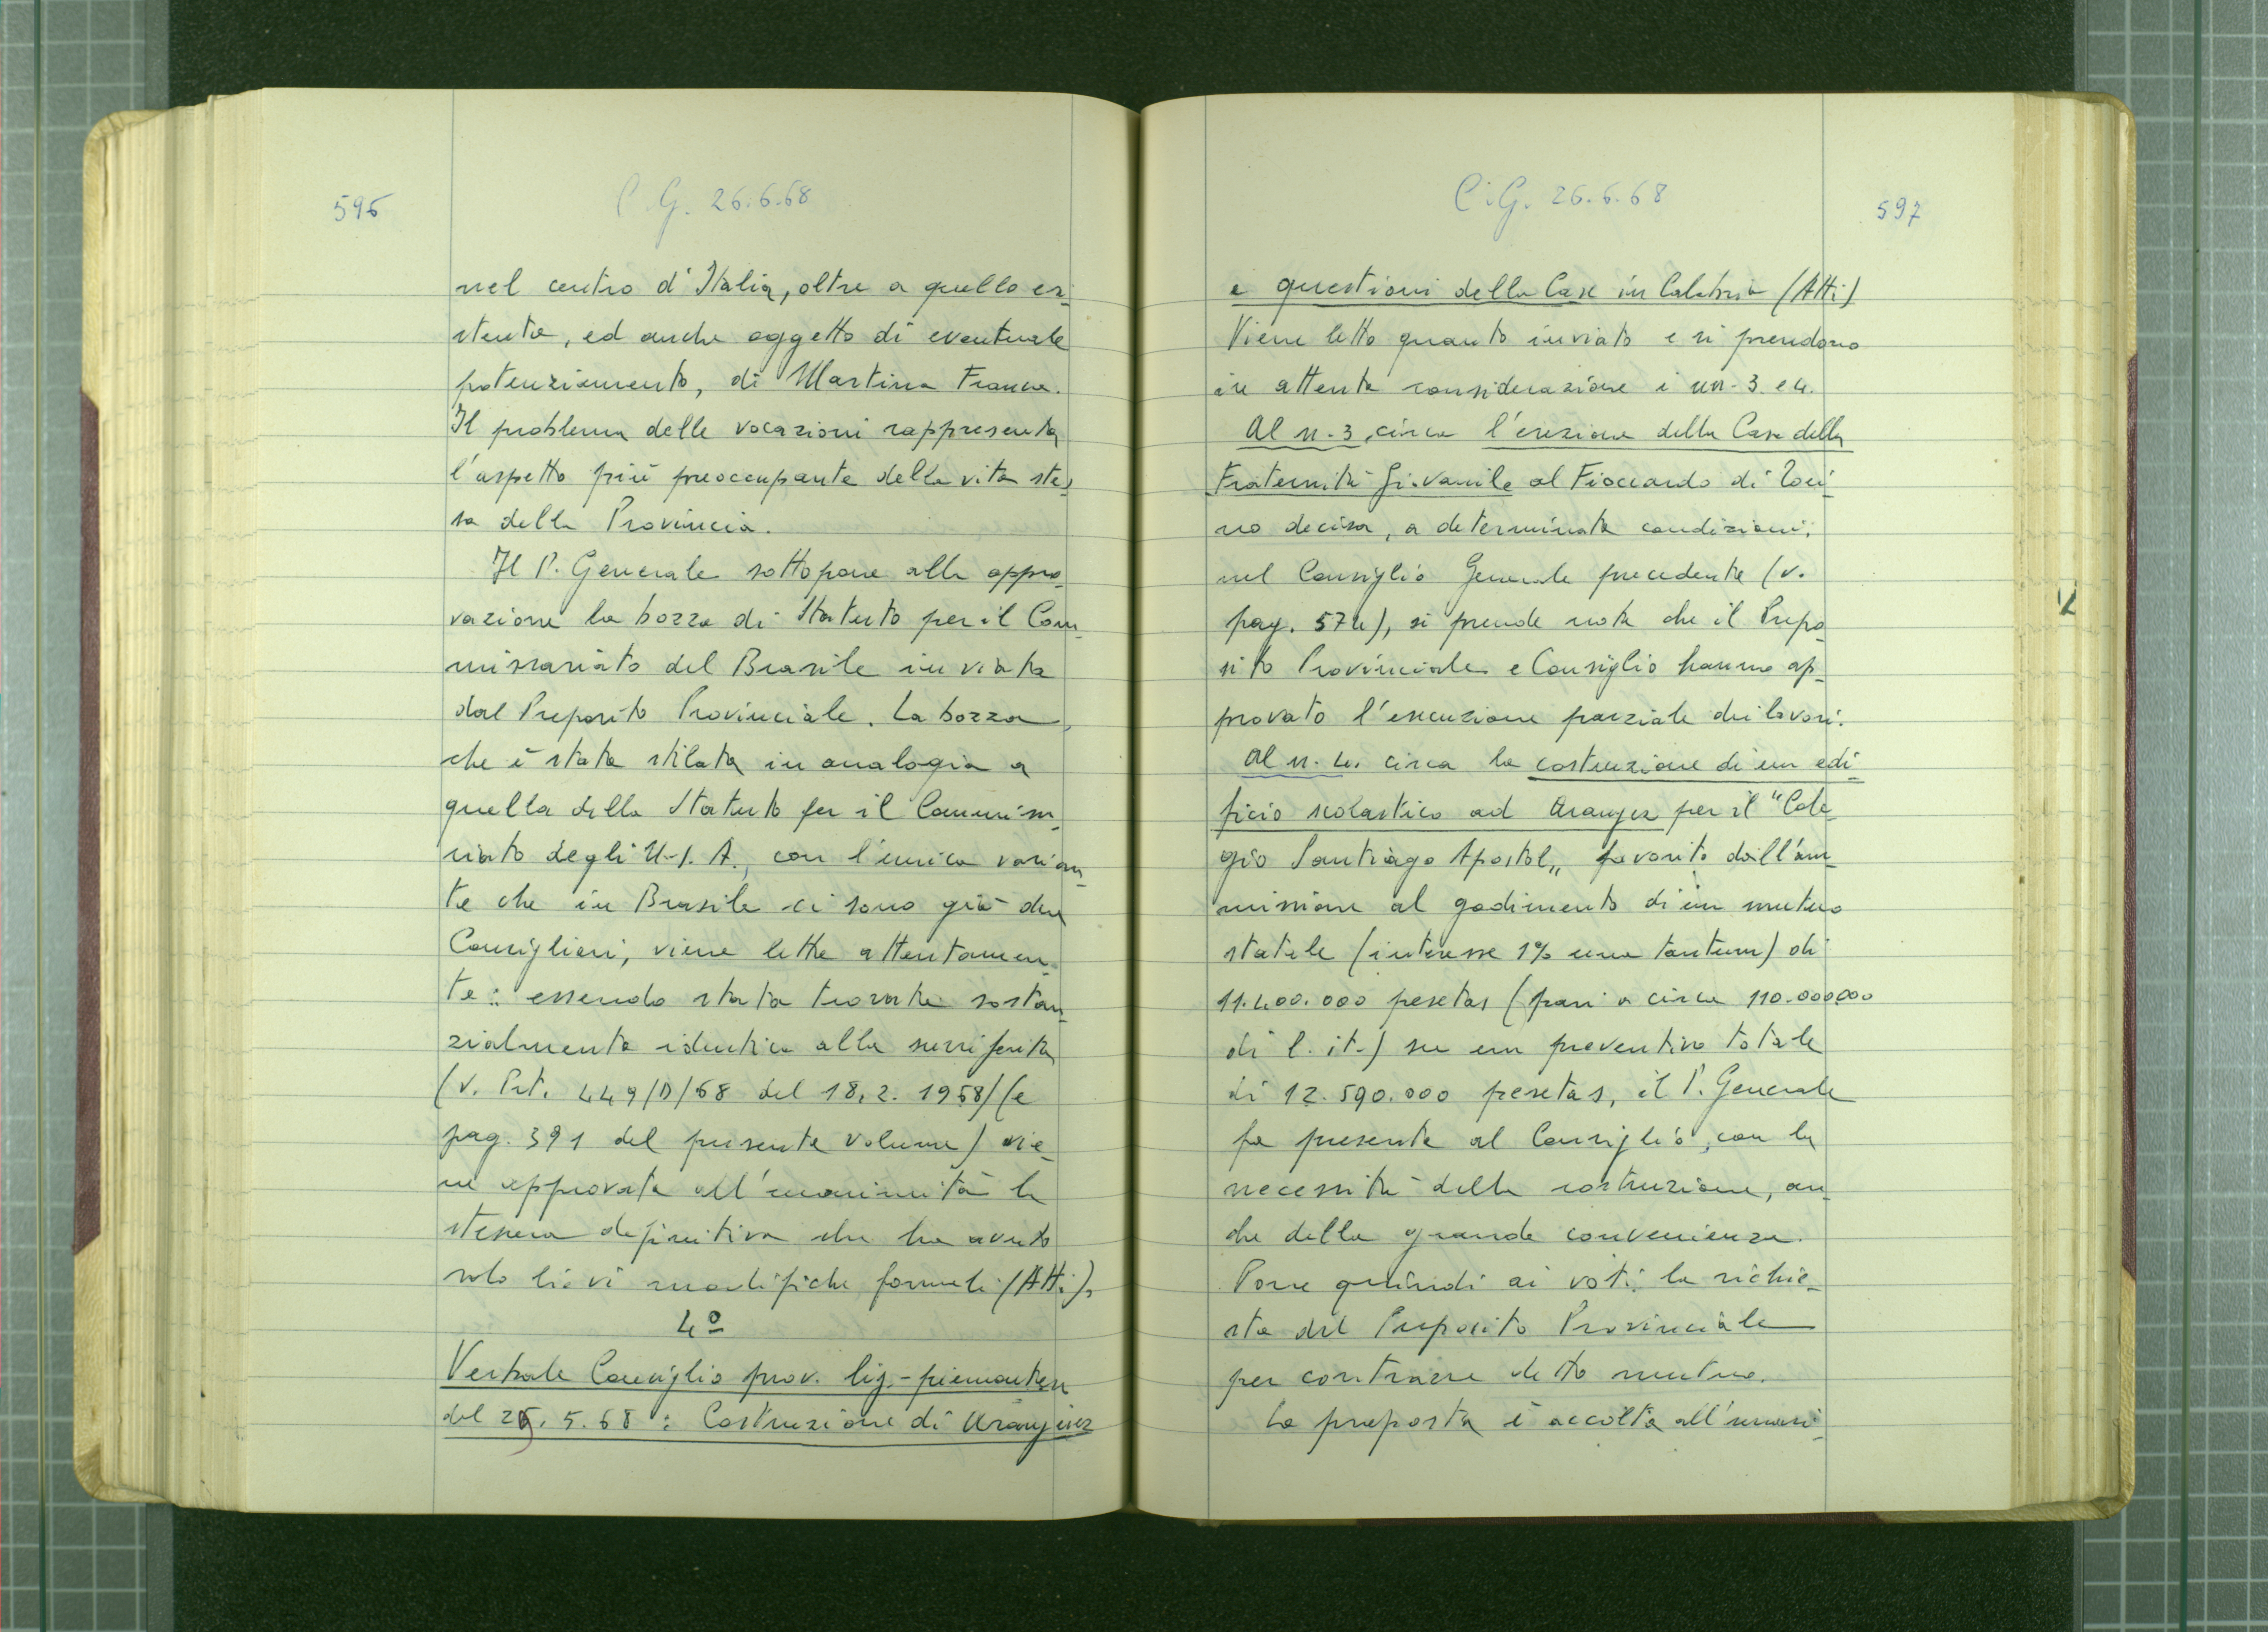 596
C.G. 26.6.68
nel centro d'Italia, oltre a quello esi
stente, ed anche oggetto di eventuale
potenziamento, di Martina Franca.
Il problema delle vocazioni rappresenta
l'aspetto più preoccupante della vita stes
sa della Provincia.
Il P. Generale sottopone alla appro
vazione la bozza di Statuto per il Com_
missariato del Brasile inviata
dal Preposito Provinciale. La bozza,
che è stata stilata in analogia a
quella dello Statuto per il Commis_
riato degli U.S.A., con l'unica varian_
te che in Brasile ci sono già due
Consiglieri, viene letta attentamen_
te: essendo stata trovata sostan_
zialmente identica alla surriferita
(v. Prt. 449/D/68 del 18.2.1968) (e
pag. 391 del presente volume) vie_
ne approvata all'unanimità la
stesura definitiva che ha avuto
solo lievi modifiche formali (Atti).
4º
Verbale Consiglio prov. lig.-piemontese
del 25.5.68: Costruzione di Aranjuez
C.G. 26.6.68
597
e questioni della Casa in Calabria (Atti)
Viene letto quanto inviato e si prendono
in attenta considerazione i nn. 3 e 4.
Al n. 3, circa l'erezione della Casa della
Fraternità Giovanile al Fioccardo di Tori_
no decisa, a determinate condizioni,
nel Consiglio Generale precedente (v.
pag. 574), si prende nota che il Prepo_
sito Provinciale e Consiglio hanno ap_
provato l'esecuzione parziale dei lavori.
Al n. 4. circa la costruzione di un edi_
ficio scolastico ad Aranjuez per il "Cole_
gio Santiago Apostol„ favorito dall'am_
missione al godimento di un mutuo
statale (interesse 1% una tantum) di
11.400.000 pesetas (pari a circa 110.000.000
di l. it.) su un preventivo totale
di 12.590.000 pesetas, il P. Generale
fa presente al Consiglio, con la
necessità della costruzione, an_
che della grande convenienza.
Pone quindi ai voti la richie_
sta del Preposito Provinciale
per contrarre detto mutuo.
La proposta è accolta all'unani_